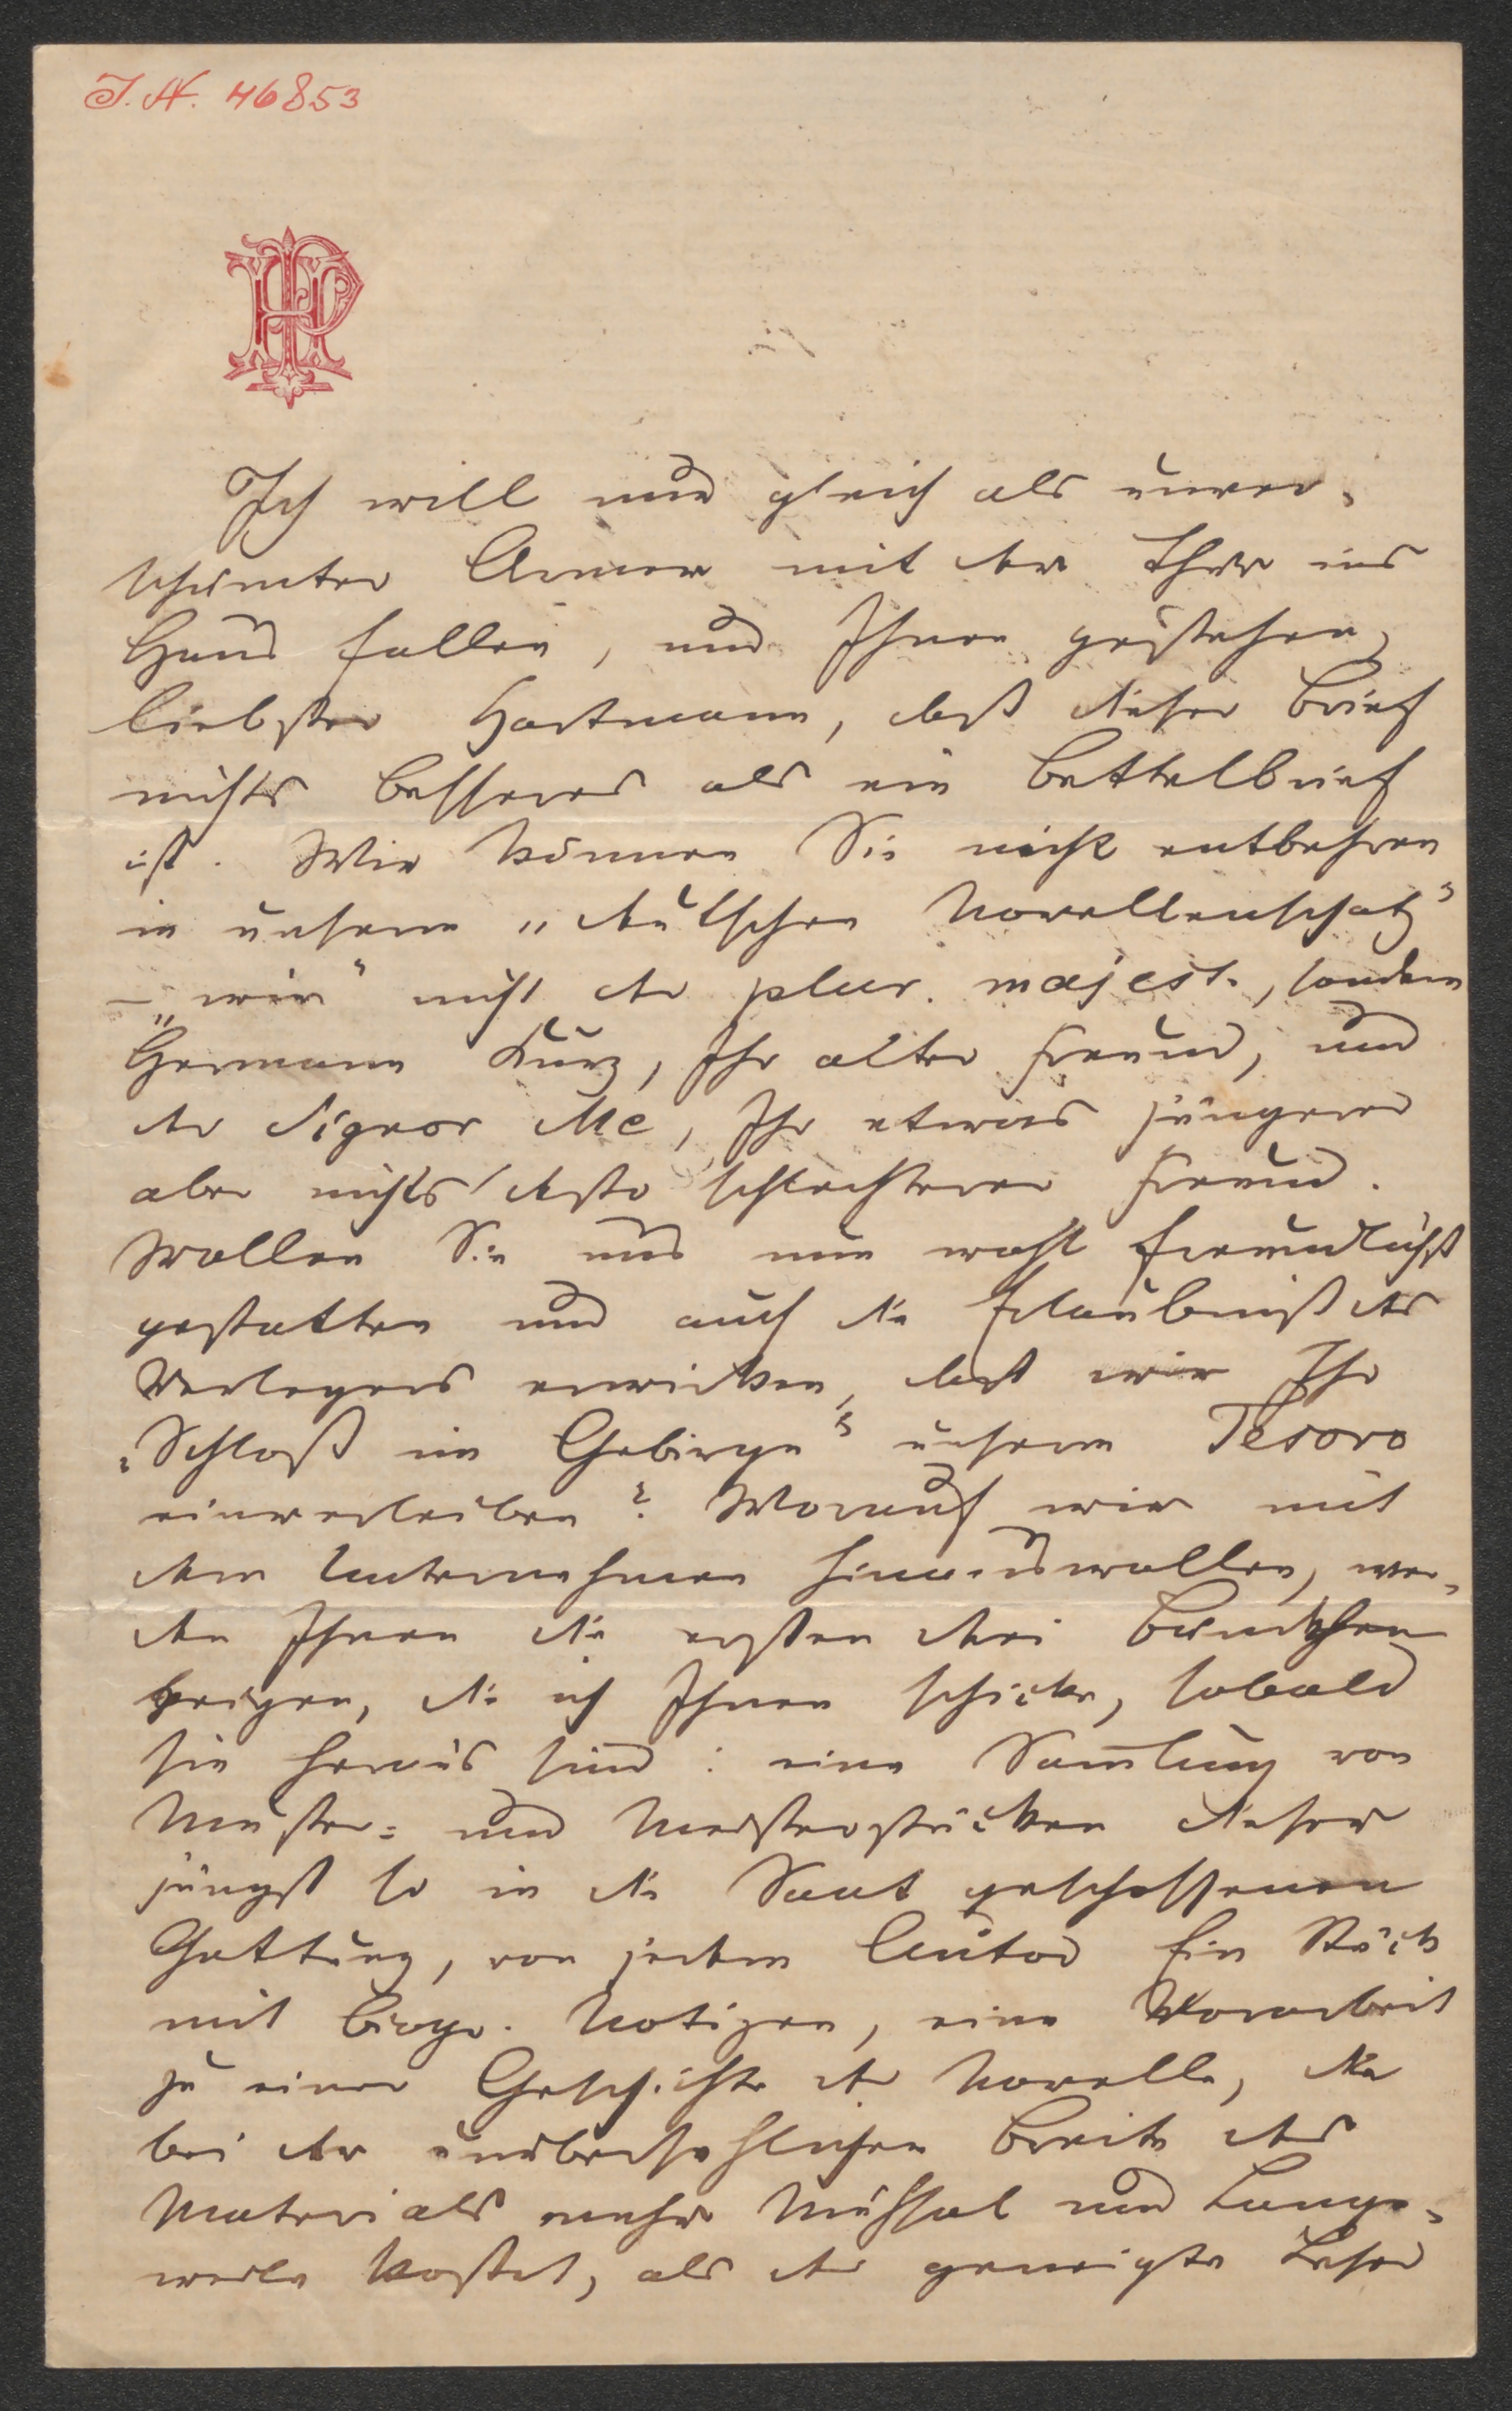 J. N. 46853
PH
Ich will nur gleich als unver-
schämter Armer mit der Thür ins
Haus fallen, und Ihnen gestehen,
liebster Hartmann, daß dieser Brief
nichts besseres als ein Bettelbrief
ist. Wir können Sie nicht entbehren
in unserm „deutschen Novellenschatz"
– „wir" nicht der plur. majest., sondern
Hermann Kurz, Ihr alter Freund, und
der Signor Me, Ihr etwas jüngerer
aber nichts desto schlechterer Freund.
Wollen Sie uns nun wohl freundlichst
gestatten und auch die Erlaubniß des
Verlegers erwirken, daß wir Ihr
„Schloß im Gebirge" unserm Tesoro
einverleiben? Worauf wir mit
dem Unternehmen hinauswollen, wer-
den Ihnen die ersten drei Bändchen
zeigen, die ich Ihnen schicke, sobald
sie heraus sind: eine Samlung von
Muster= und Meisterstücken dieser
jüngst so in die Saat geschossenen
Gattung, von jedem Autor Ein Stück
mit biogr. Notizen, eine Vorarbeit
zu einer Geschichte der Novelle, die
bei der unübersehlichen Breite des
Materials mehr Mühsal und Lange-
weile kostet, als der geneigte Leser